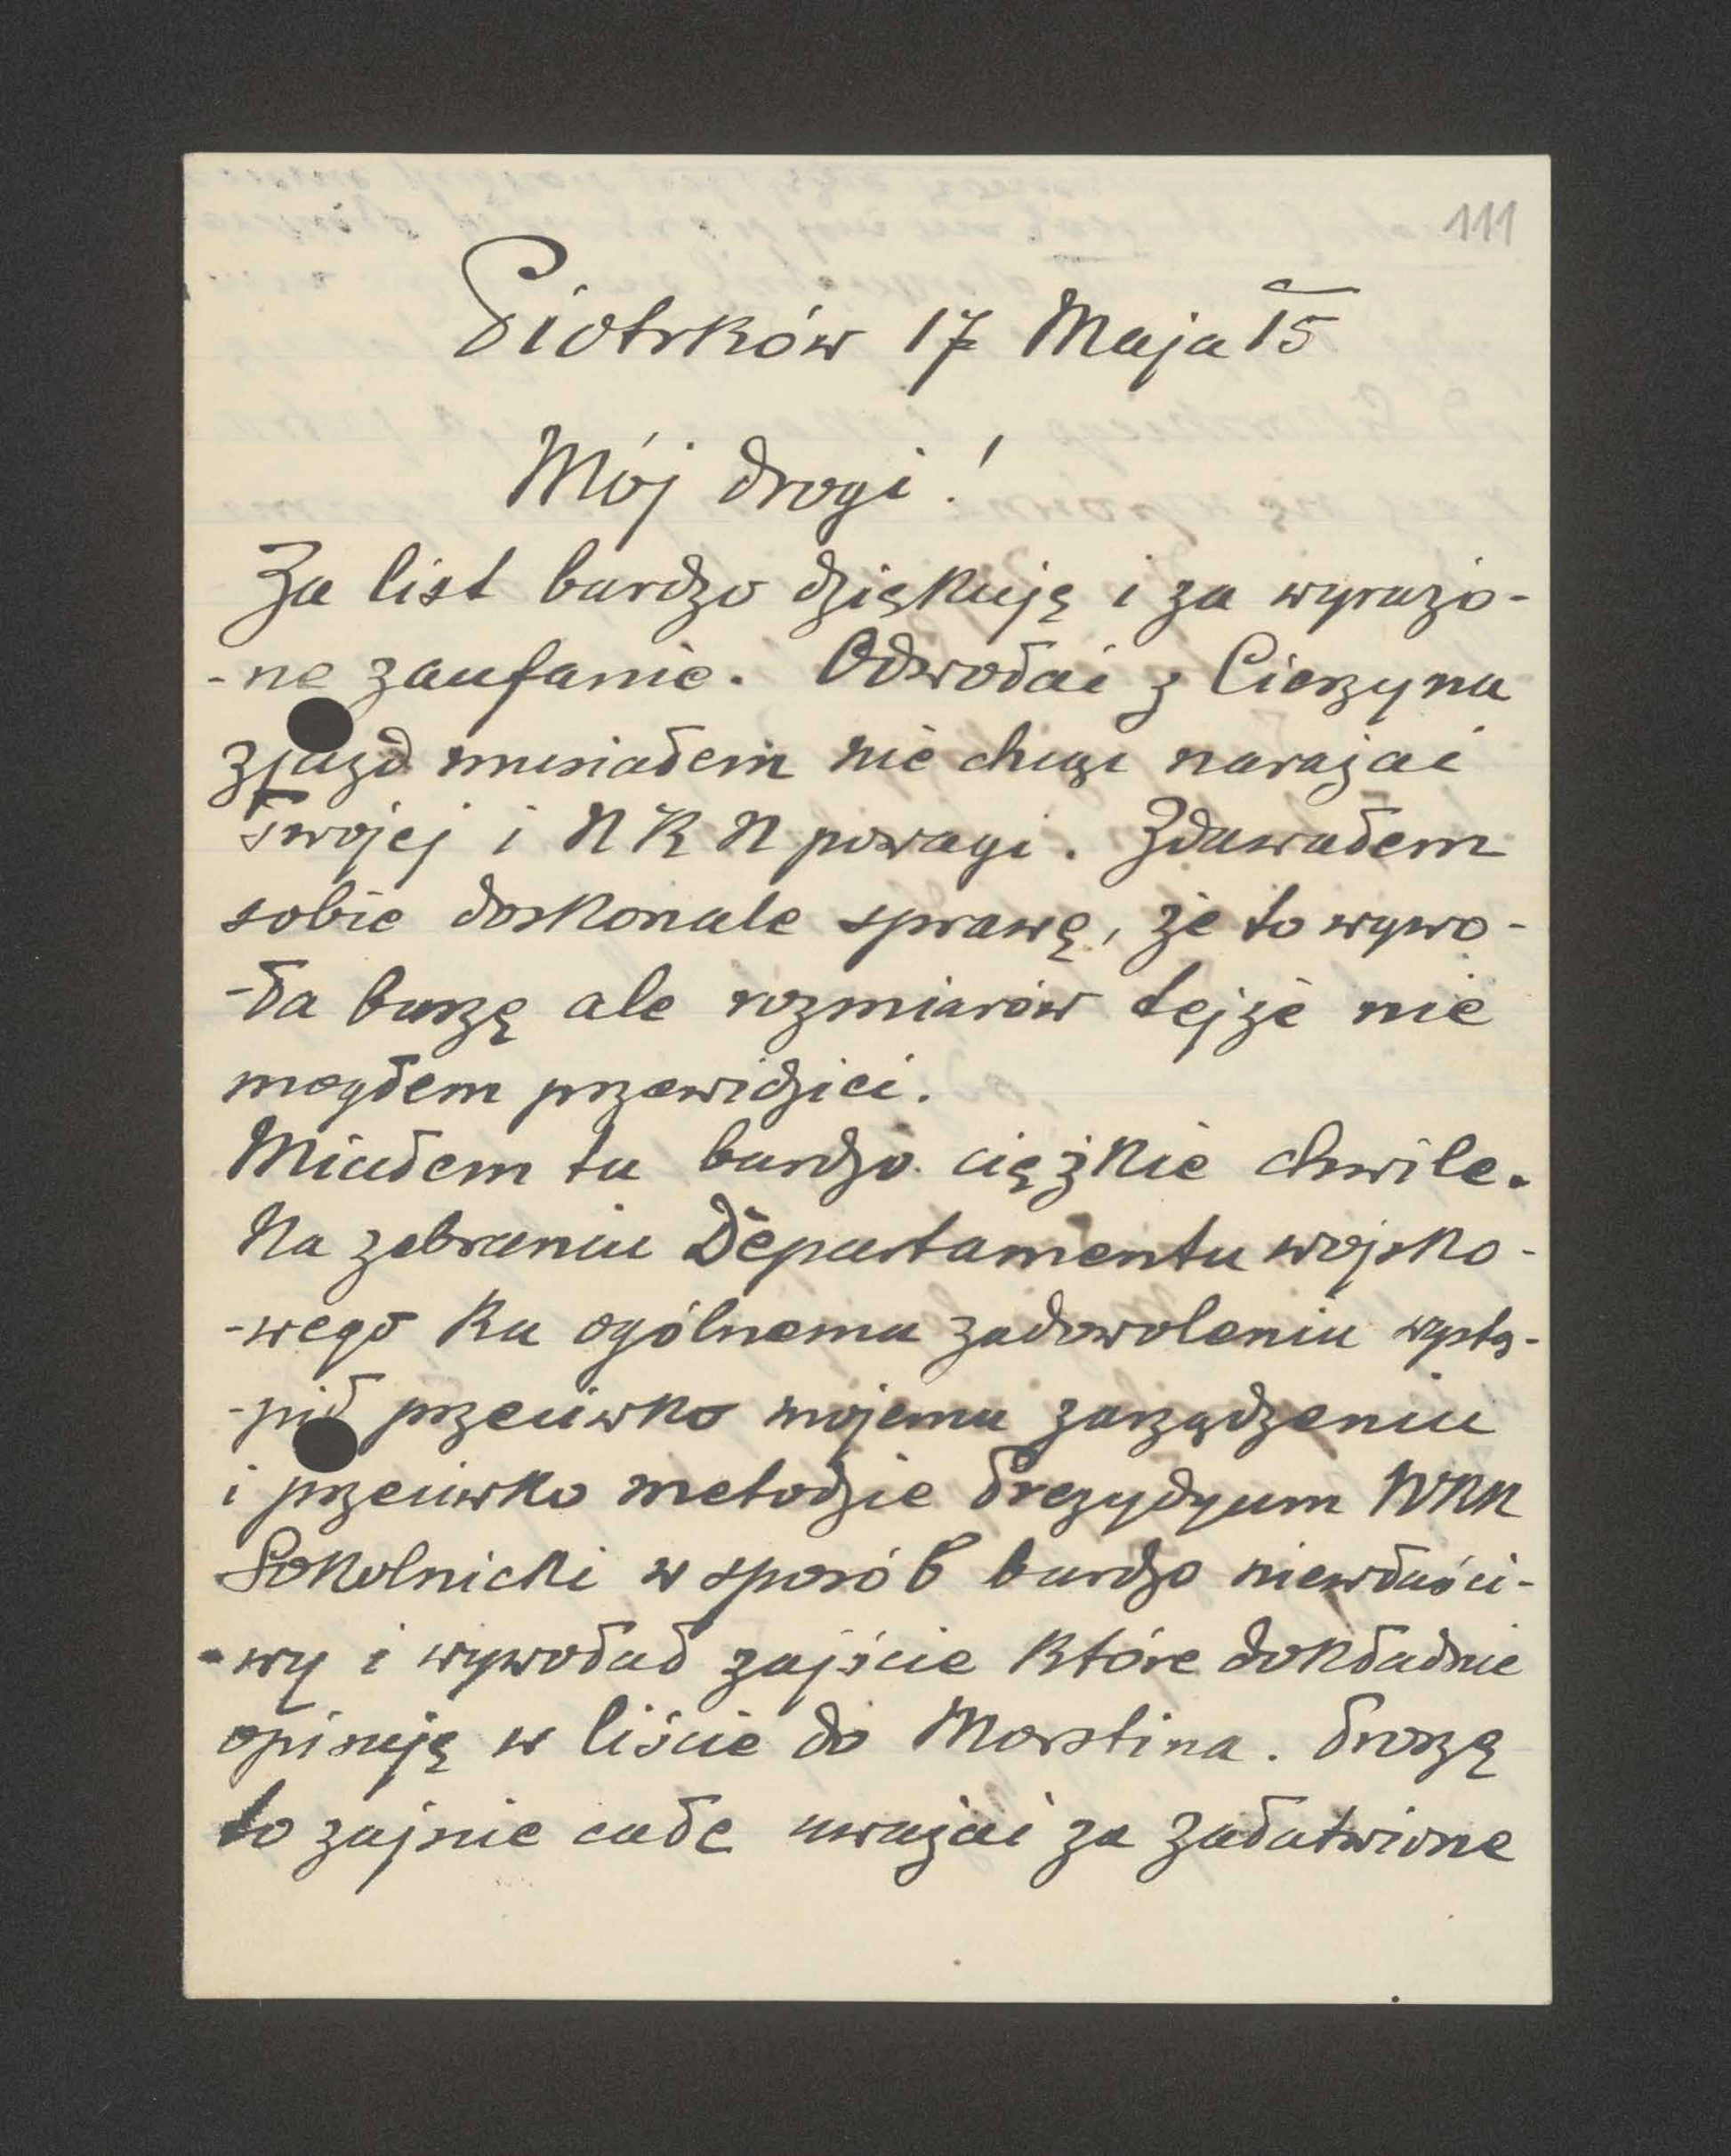 111
Piotrków 17 Maja 15
Mój drogi!
Za list bardzo dziękuję i za wyrażo-
-ne zaufanie. Odwołać z Cieszyna
zjazd musiałem nie chcąc narażać
swojej i NKN powagi. Zdawałem
sobie doskonale sprawę, że to wywo-
-ła burzę ale rozmiarów tejże nie
mogłem przewidzieć.
Miałem tu bardzo ciężkie chwile.
Na zebraniu Departamentu wojsko-
-wego ku ogólnemu zadowoleniu wystą-
-pił przeciwko mojemu zarządzeniu
i przeciwko metodzie Prezydyum NKN
Sokolnicki w sposób bardzo niewłaści-
-wy i wywołał zajście które dokładnie
opisuję w liście do Morstina. Proszę
to zajście całe uważać za załatwione